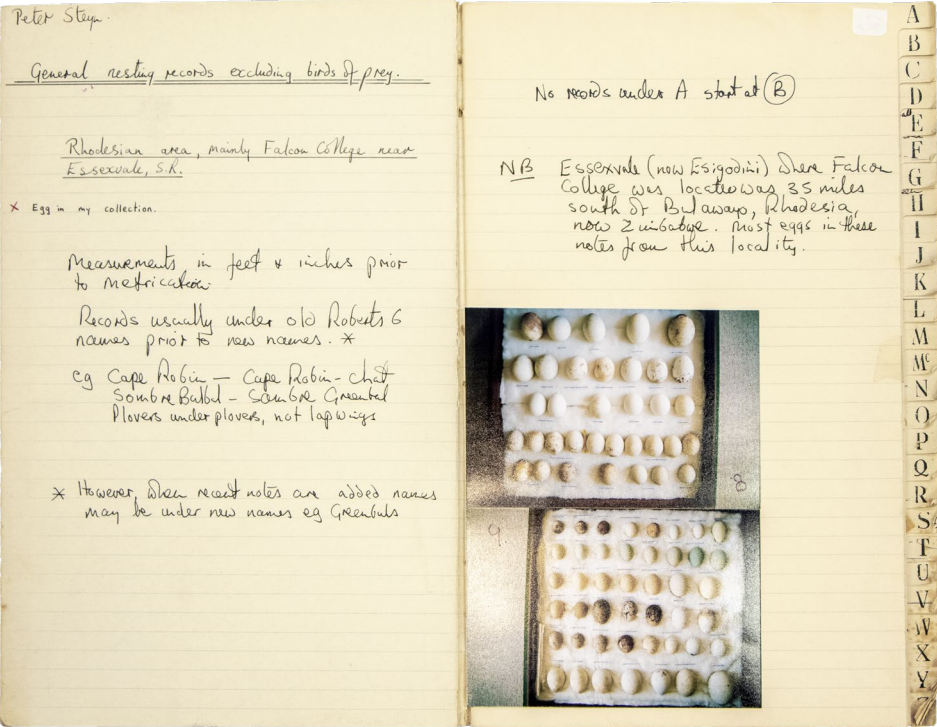 Peter Steyn.
General nesting records excluding birds of prey.
Rhodesian area, mainly Falcon College near
Essexvale, S.R.
× Egg in my collection.
Measurements in feet & inches prior
to metrication.
Records usually under old Roberts 6
names prior to new names. *
eg Cape Robin — Cape Robin-chat
Sombre Bulbul — Sombre Greenbul
Plovers under plovers, not lapwings
* However, when recent notes are added names
may be under new names eg Greenbuls
No records under A start at B
NB Essexvale (now Esigodini) where Falcon
College was located was 35 miles
south of Bulawayo, Rhodesia,
now Zimbabwe. Most eggs in these
notes from this locality.
8
9.
A
B
C
D
E
F
G
H
I
J
K
L
M
Mc
N
O
P
Q
R
S
T
U
V
W
X
Y
Z